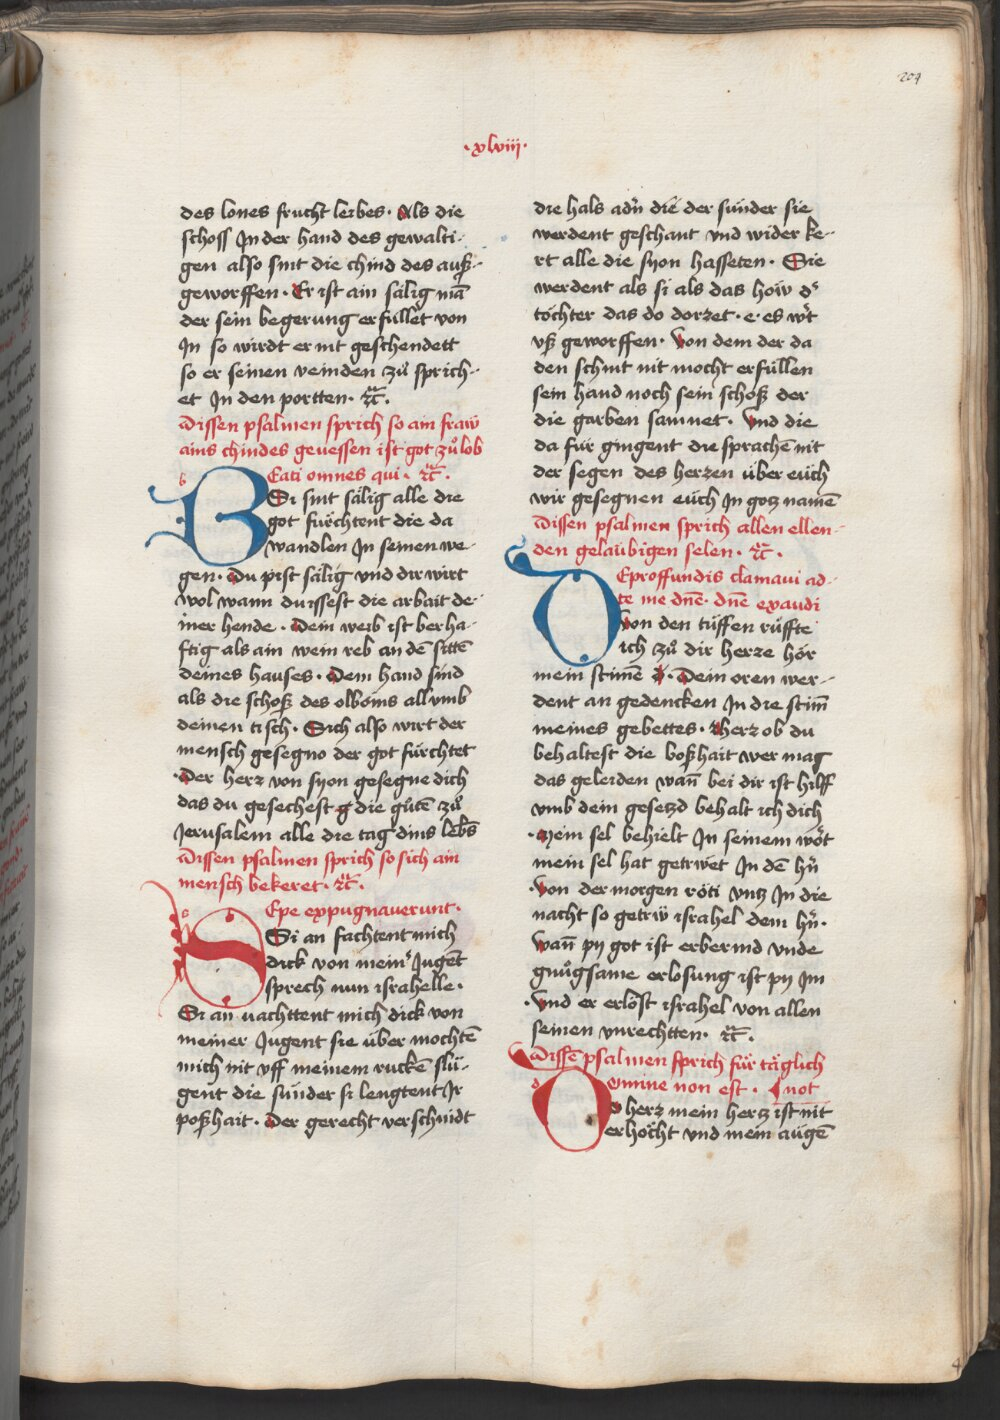 204
·xlviii·
des lones frucht leibes· Als die
schoss Jn der hand des gewalti-
gen also sint die chind des auß-
geworffen· Er ist ain sälig mā
der sein begerung erfüllet von
Jn so wirdt er nit geschendett
so er seinen veinden zů sprich-
et Jn den portten· ꝛc̄·
Dissen psalmen sprich so ain fraw
ains chindes genessen ist got zů lob
Beati omnes qui· ꝛc̄·
Si sint sälig alle die
got fürchtent die da
wandlen Jn seinen we-
gen· Du pist sälig vnd dir wirt
wol wann du issest die arbait de-
iner hende· Dein weib ist berha-
ftig als ain wein reb an dē sittē
deines hauses· Dein hand sind
als die schoß des olboms all vmb
deinen tisch· Sich also wirt der
mensch gesegno der got fürchtet
·Der herz von syon gesegne dich
das du gesechest g die gůtē zů
Jerusalem alle die tag dins lebēs
Dissen psalmen sprich so sich ain
mensch bekeret· ꝛc̄·
Sepe expugnauerunt·
Si an fachtent mich
dick von mein' Jugēt
sprech nun israhelle·
Si an vachttent mich dick von
meiner Jugent sie über mochtē
mich nit vff meinem ruckē slü-
gent die sünder si lengtent Jr
poßhait· Der gerecht verschnidt
die hals adn̄ die der sünder sie
werdent geschant vnd wider ke-
rt alle die syon hasseten· Sie
werdent als si als das höw d'
töchter das do dorzet·e·es wt̄
vß geworffen· Von dem der da
den schnit nit mocht erfüllen
sein hand noch sein schoß der
die garben samnet· Vnd die
da für gingent die sprachē nit
der segen des herzen über eüch
wir gesegnen eüch Jn gotz namē
Dissen psalmen sprich allen ellen-
den gelaübigen selen· ꝛc̄·
Deproffundis clamaui ad-
te me dn̄e· dn̄e exaudi
Von den tüffen rüffte
ich zů dir herze hör
mein stimē · Dein oren wer-
dent an gedencken Jn die stim̄
meines gebettes· Herz ob du
behaltest die boßhait wer mag
das geleiden wan̄ bei dir ist hilff
vmb dein gesetzd behalt ich dich
·Mein sel behielt Jn seinem wort
mein sel hat getrwet Jn dē hn̄
·Von der morgen röti vntz Jn die
nacht so getrẅ israhel dem hn̄·
Wan̄ py got ist erbermd vnde
gnůgsame erlosung ist py Jm
·Vnd er erlöst israhel von allen
seinen vnrechtten· ꝛc̄·
Dissē psalmen sprich für täglich
Domine non est· not
O herz mein hertz ist nit
erhöcht vnd mein augē